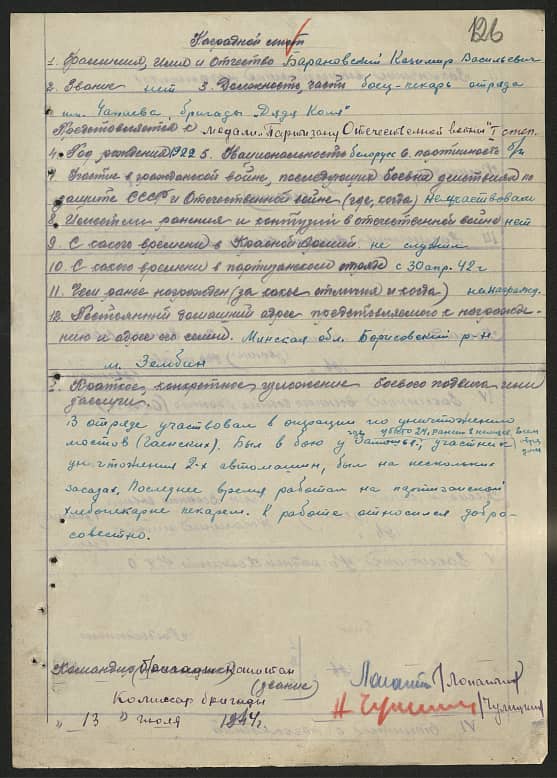 126
Наградной лист
1. Фамилия, имя и Отчество Барановский Казимир Васильевич
2. Звание нет 3. Должность, часть боец-пекарь отряда
им. Чапаева, бригады „Дядя Коля"
Представляется к медали „Партизану Отечественной войны" I степ.
4. Год рождения 1922 5. Национальность белорус 6. партийность б/п
7. Участие в гражданской войне, последующих боевых действиях по
защите СССР и Отечественной войне (где, когда) не участвовал
8. Имеет ли ранения и контузии в отечественной войне нет
9. С какого времени в Красной Армии не служил
10. С какого времени в партизанском отряде с 30 апр. 42 г
11. Чем ранее награжден (за какие отличия и когда) не награжд.
12. Постоянный домашний адрес представляемого к награжде-
нию и адрес его семьи. Минская обл. Борисовский р-н
м. Зембин
I. Краткое, конкретное изложение боевого подвига или
заслуги.
В отряде участвовал в операции по уничтожению
мостов (гаенских). Был в бою у
где убито 24, ранен
участник
уничтожения 2-х автомашин, был на нескольких
засадах. Последнее время работал на партизанской
хлебопекарне пекарем. К работе относился добро-
совестно.
Командир бригады Капитан Лопатин /Лопатин/
(звание)
Комиссар бригады
„ 13 " июля 1944 г.